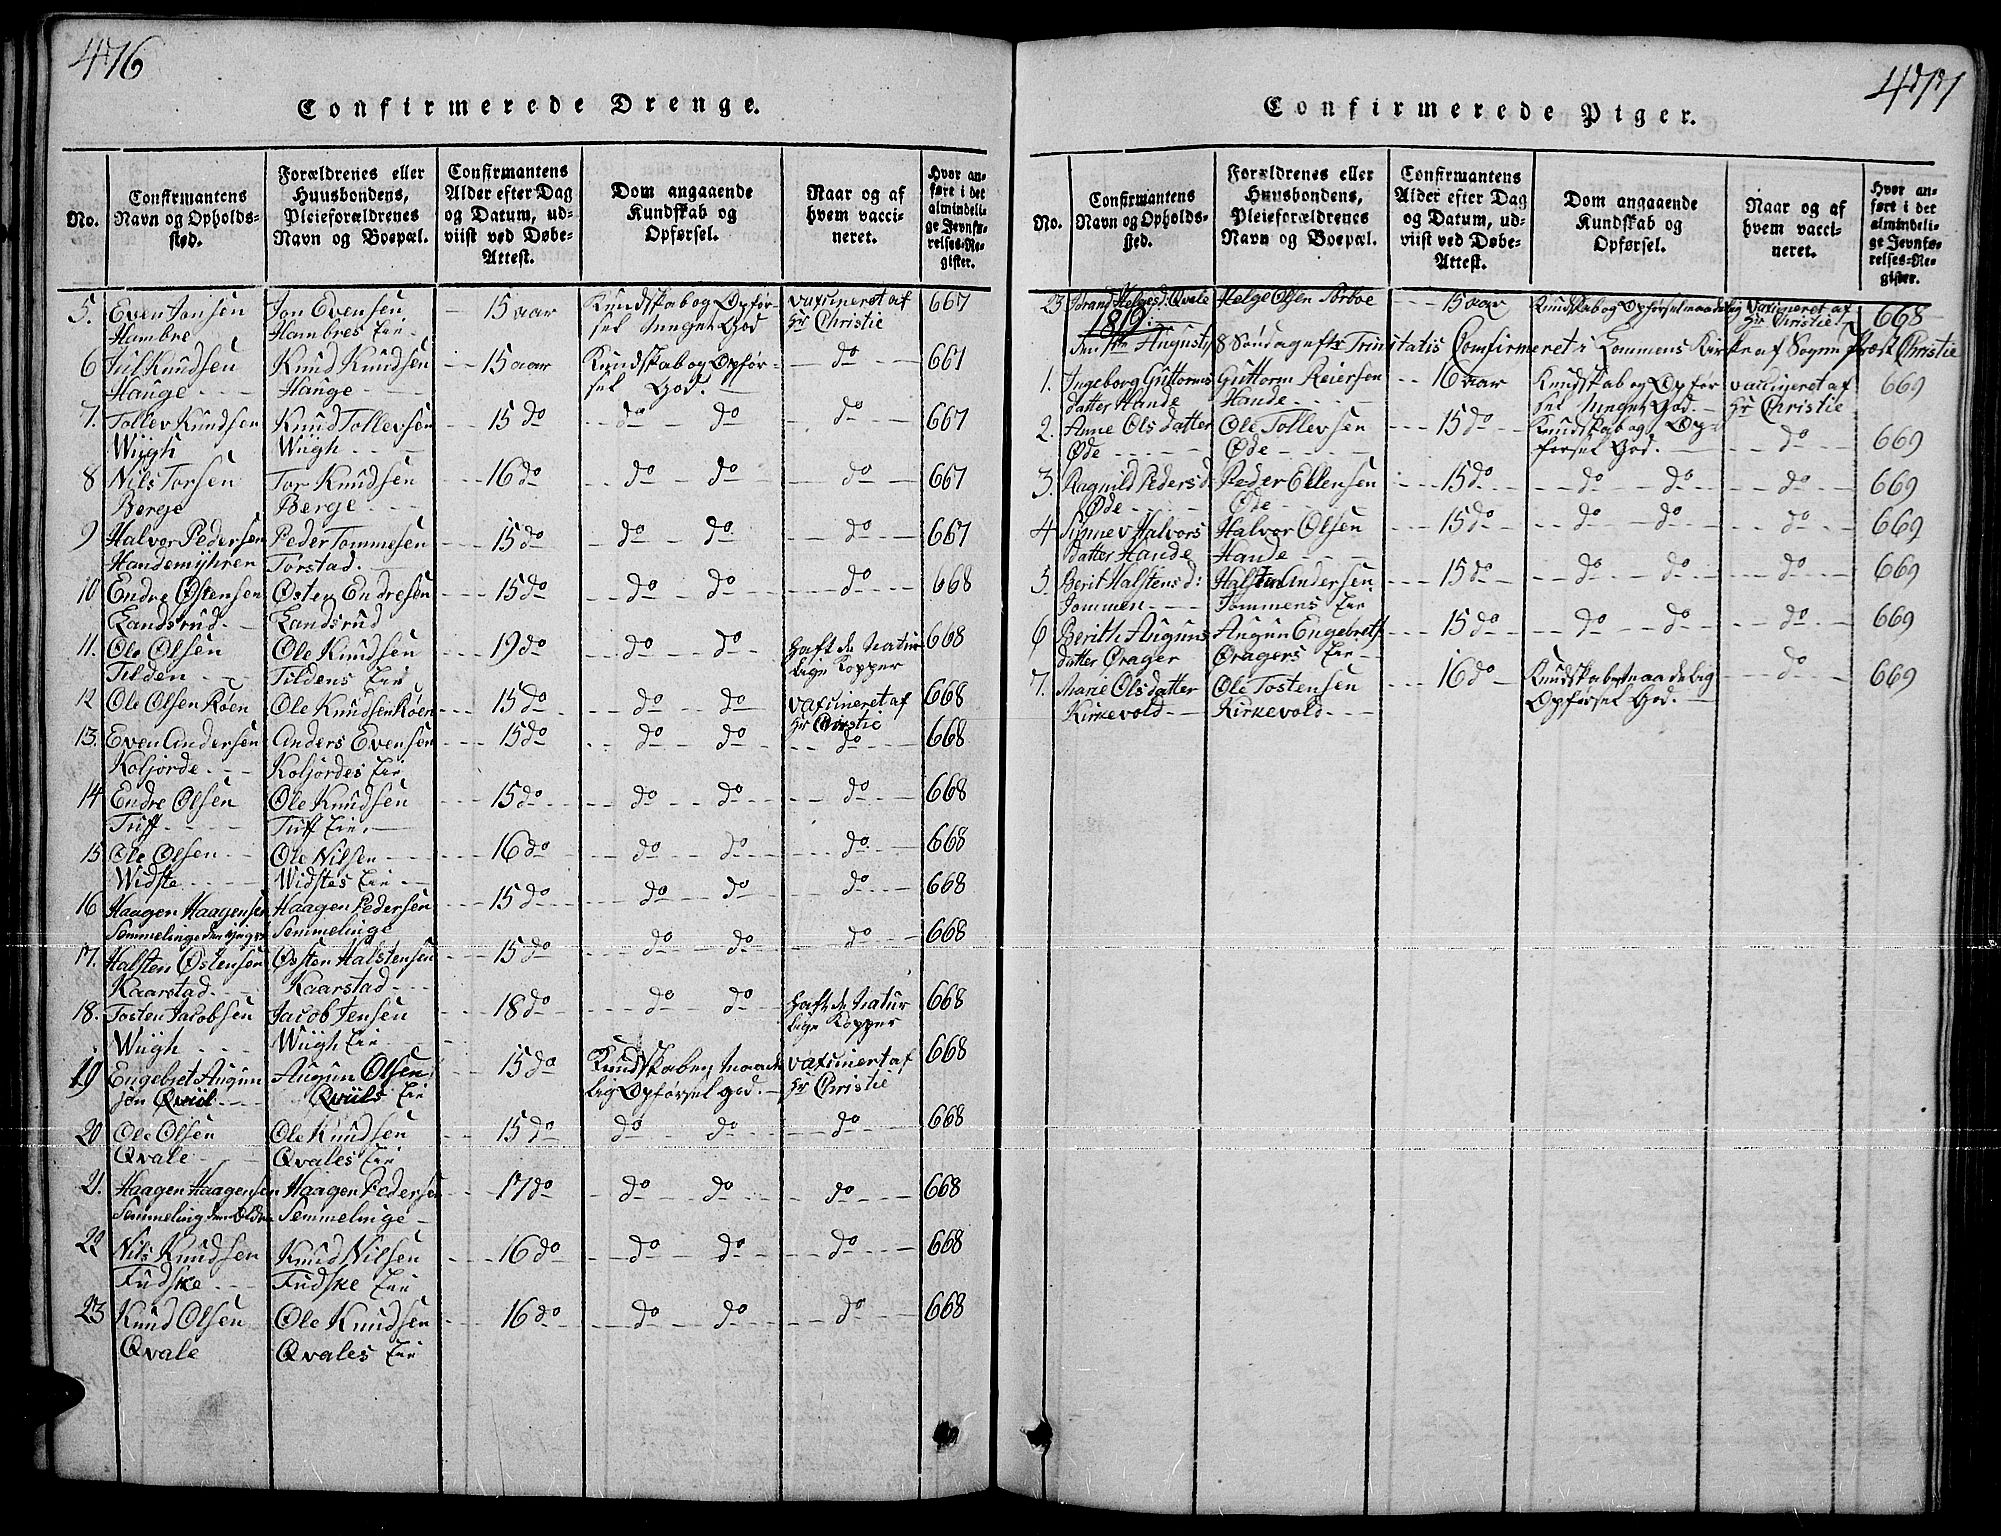 476
Confirmerede Drenge.
No. Confirmantens Navn og Opholdssted. Forældrenes eller Huusbondens, Pleieforældrenes Navn og Boepæl. Confirmantens Alder efter Dag og Datum, udviist ved Døbe-Attest. Dom angaaende Kundskab og Opførsel. Naar og af hvem vaccineret. Hvor anført i det almindelige Jevnførelses-Register.
5. Even Jonsen Jon Evensen 15 aar Kundskab og Opfør- vaxineret af 667
Hambre Hambres Eie sel meget God Hr Christie
6 Jul Knudsen Knud Knudsen 15 aar Kundskab og Opfør- do 667
Hauge Hauge sel God.
7. Tollev Knudsen Knud Tollevsen 15 do do do do 667
Wiigh Wiigh
8 Nils Torsen Tor Knudsen 16 do do do do 667
Berge Berge
9 Halvor Pedersen Peder Tommesen 15 do do do do 667
Handemyhren Torstad.
10 Endre Østensen Østen Endresen 15 do do do do 668
Landsrud Landsrud
11. Ole Olsen Ole Knudsen 19 do do do haft de Natur 668
Tilden Tildens Eie lige Kopper
12 Ole Olsen Røen Ole Knudsen Røen 15 do do do vaxineret af 668
Hr Christie
13. Even Andersen Anders Evensen 15 do do do do 668
Koljorde Koljordes Eie
14 Endre Olsen Ole Knudsen 15 do do do do 668
Tuff Tuff Eie
15 Ole Olsen Ole Nilsen 16 do do do do 668
Widste Widstes Eie
16 Haagen Haagensen Haagen Pedersen 15 do do do do 668
Semmelinge den yngre Semmelinge
17. Halsten Østensen Østen Halstensen 15 do do do do 668
Kaarstad Kaarstad
18. Tosten Jacobsen Jacob Jensen 18 do do do haft de Natur 668
Wiigh Wiigh Eie lige Kopper
19 Engebret Augun Augun Olsen 15 do Kundskaben maade vaxineret af 668
sen Qviil Qviils Eie lig Opførsel god Hr Christie
20 Ole Olsen Ole Knudsen 15 do do do do 668
Qvale Qvales Eie
21. Haagen Haagensen Haagen Pedersen 17 do do do do 668
Semmeling den Eldre Semmelinge
22 Nils Knudsen Knud Nilsen 16 do do do do 668
Fudske Fudske Eie
23 Knud Olsen Ole Knudsen 16 do do do do 668
Qvale Qvales Eie
477
Confirmerede Piger.
No. Confirmantens Navn og Opholdssted. Forældrenes eller Huusbondens, Pleieforældrenes Navn og Boepæl. Confirmantens Alder efter Dag og Datum, udviist ved Døbe-Attest. Dom angaaende Kundskab og Opførsel. Naar og af hvem vaccineret. Hvor anført i det almindelige Jevnførelses-Register.
23 Helgesd. Qvale Helge Olsen 15 aar Kundskab og Opførsel maadelig vaxineret af 668
1819. Hr Christie
August 8 Søndag eftr Trinitatis Comfirmeret i Lommens Kirke af Sogne Præst Christie
1. Ingeborg Guttorms Guttorm Reiersen 16 aar Kundskab og Opfør vaccineret af 669
datter Hande Hande sel meget God. Hr Christie
2. Anne Olsdatter Ole Tollevsen 15 do Kundskab og Op- do 669
Øde Øde førsel God.
3. Ragnild Pedersd. Peder Ellensen 15 do do do do 669
Øde Øde
4 Signe Halvors Halvor Olsen 15 do do do do 669
datter Hande Hande
5 Berit Halstensd: Halsten Andersen 15 do do do do 669
Jommen Jommens Eie
6 Berith Auguns Augun Engebrets 15 do do do do 669
datter Ørager Øragers Eie
7. Marie Olsdatter Ole Tostensen 16 do Kundskaben maadelig do 669
Kirkevold Kirkevold Opførsel God.